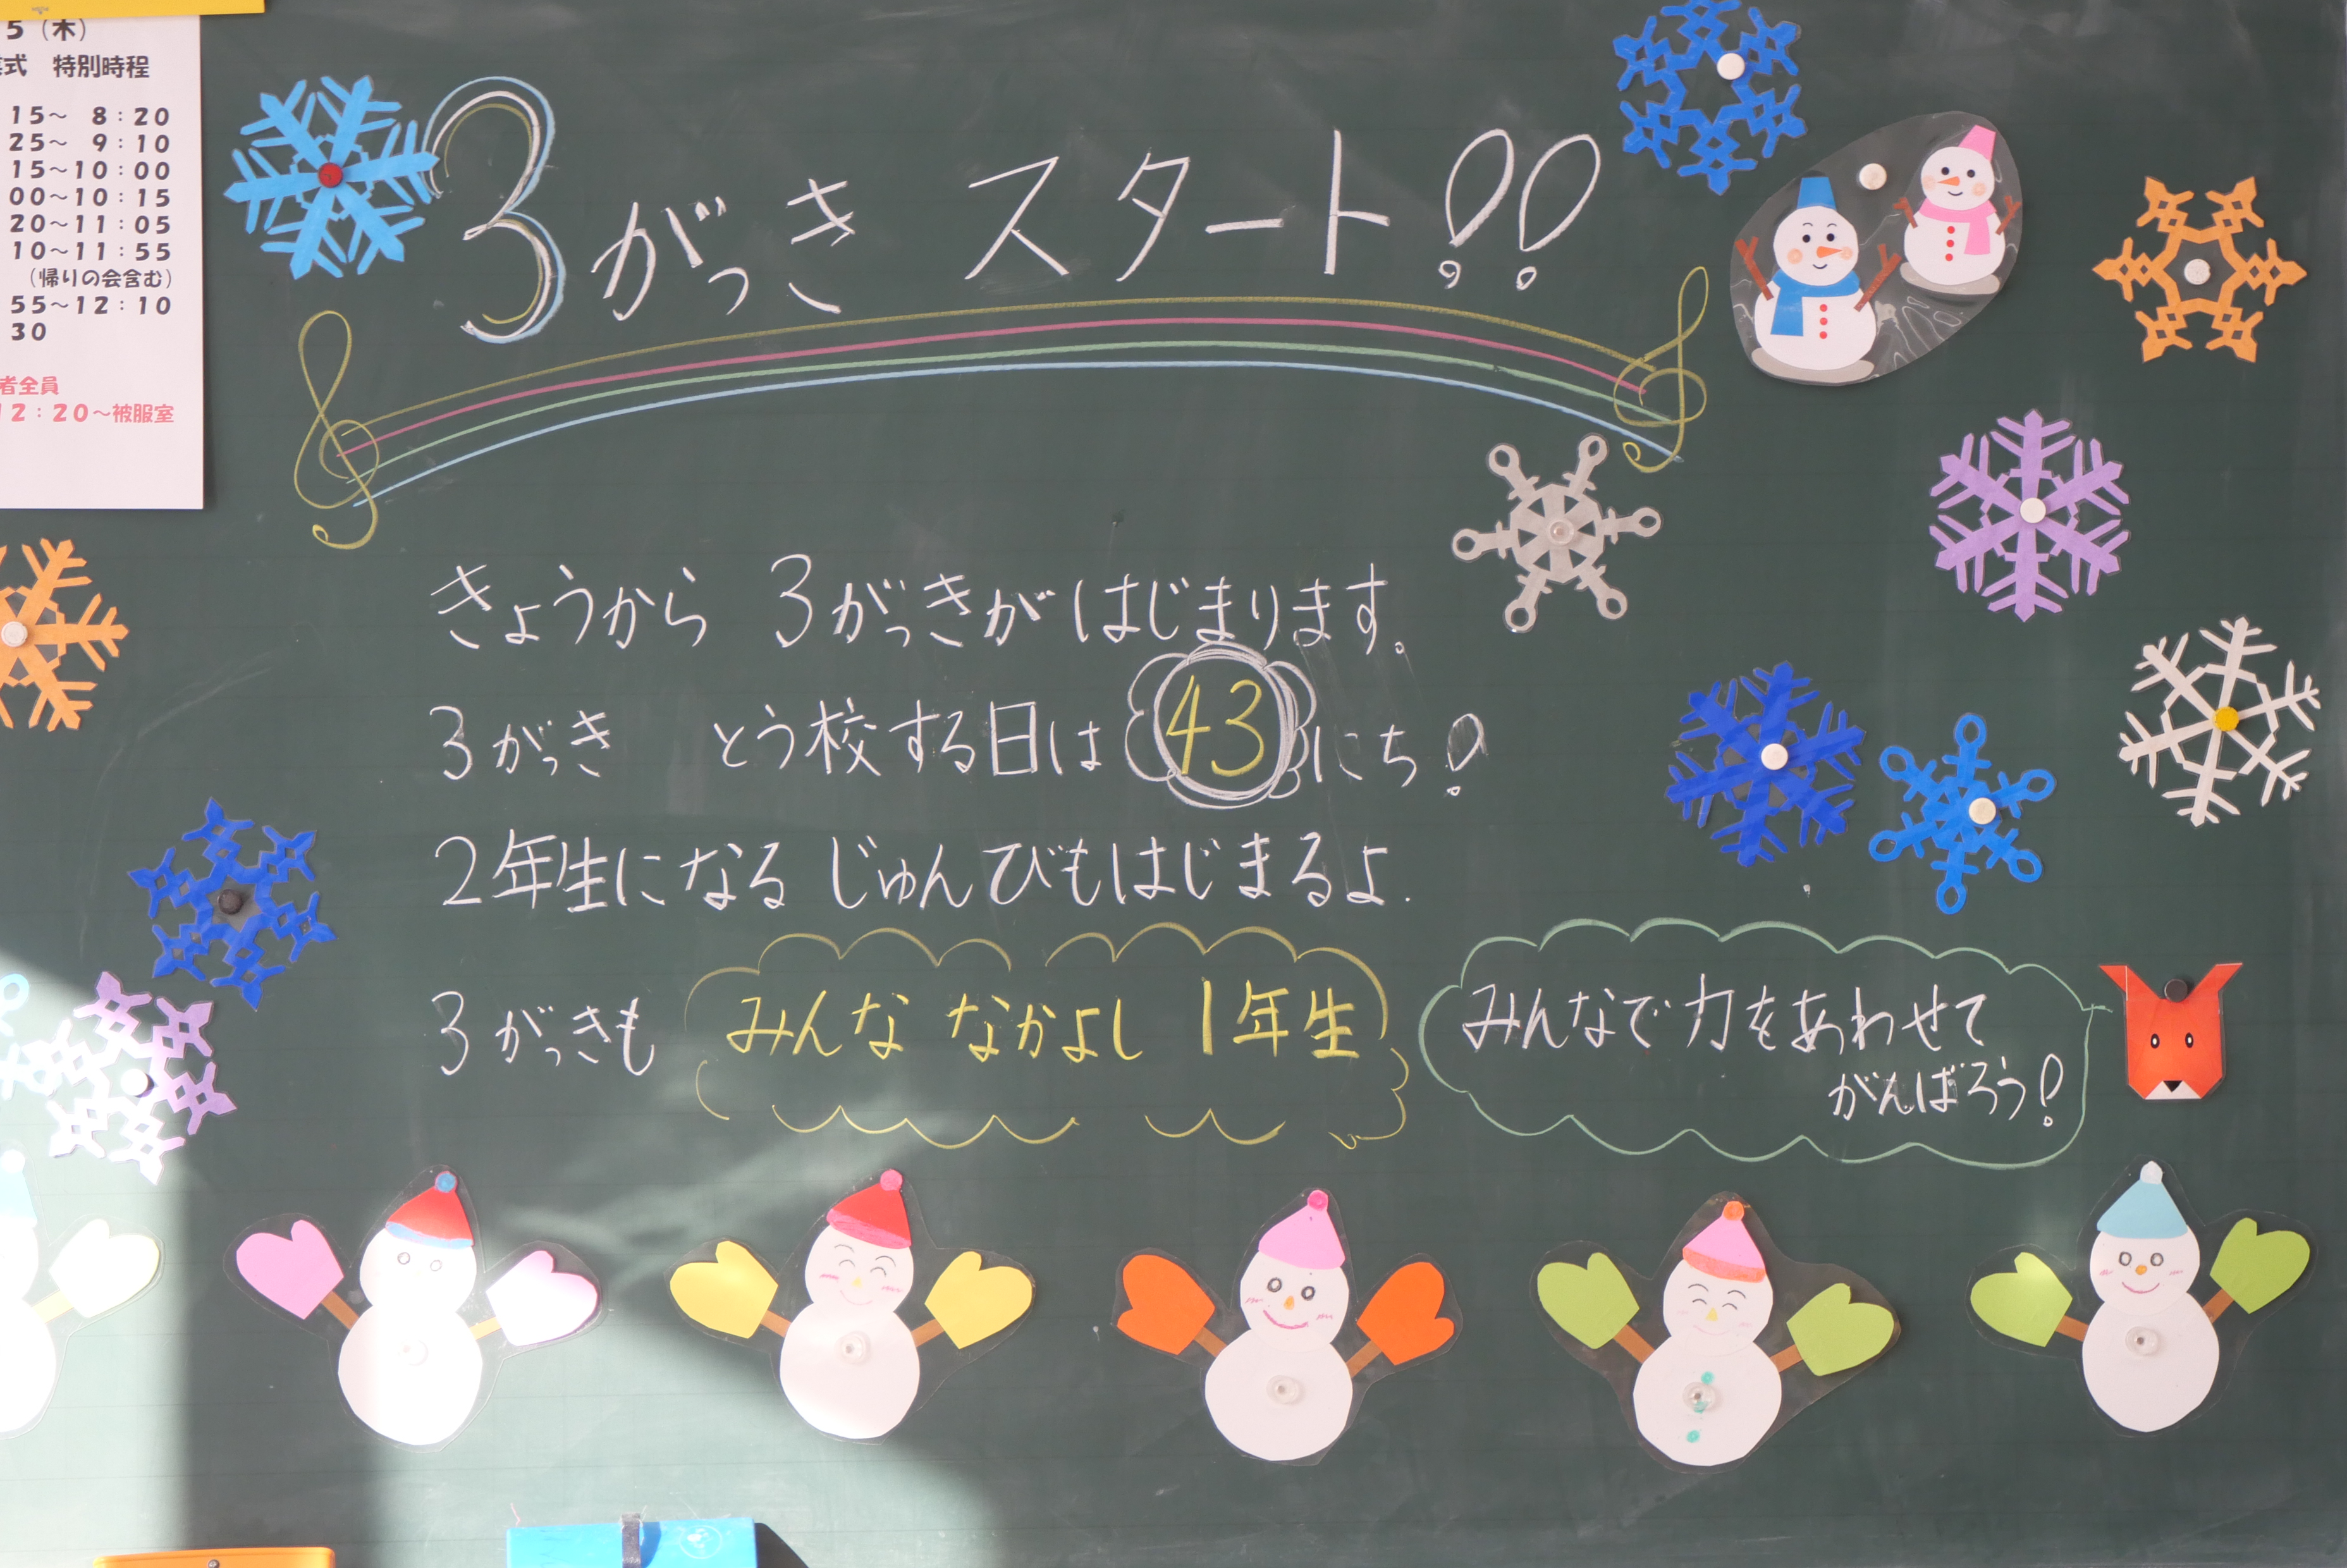 5（木）
式　特別時程
15～ 8：20
25～ 9：10
15～10：00
00～10：15
20～11：05
10～11：55
（帰りの会含む）
55～12：10
30
者全員
12：20～被服室
3がっき スタート!!
きょうから 3がっきがはじまります。
3がっき とう校する日は 43にち!
2年生になる じゅんびもはじまるよ.
3がっきも みんな なかよし 1年生
みんなで力をあわせて
がんばろう!